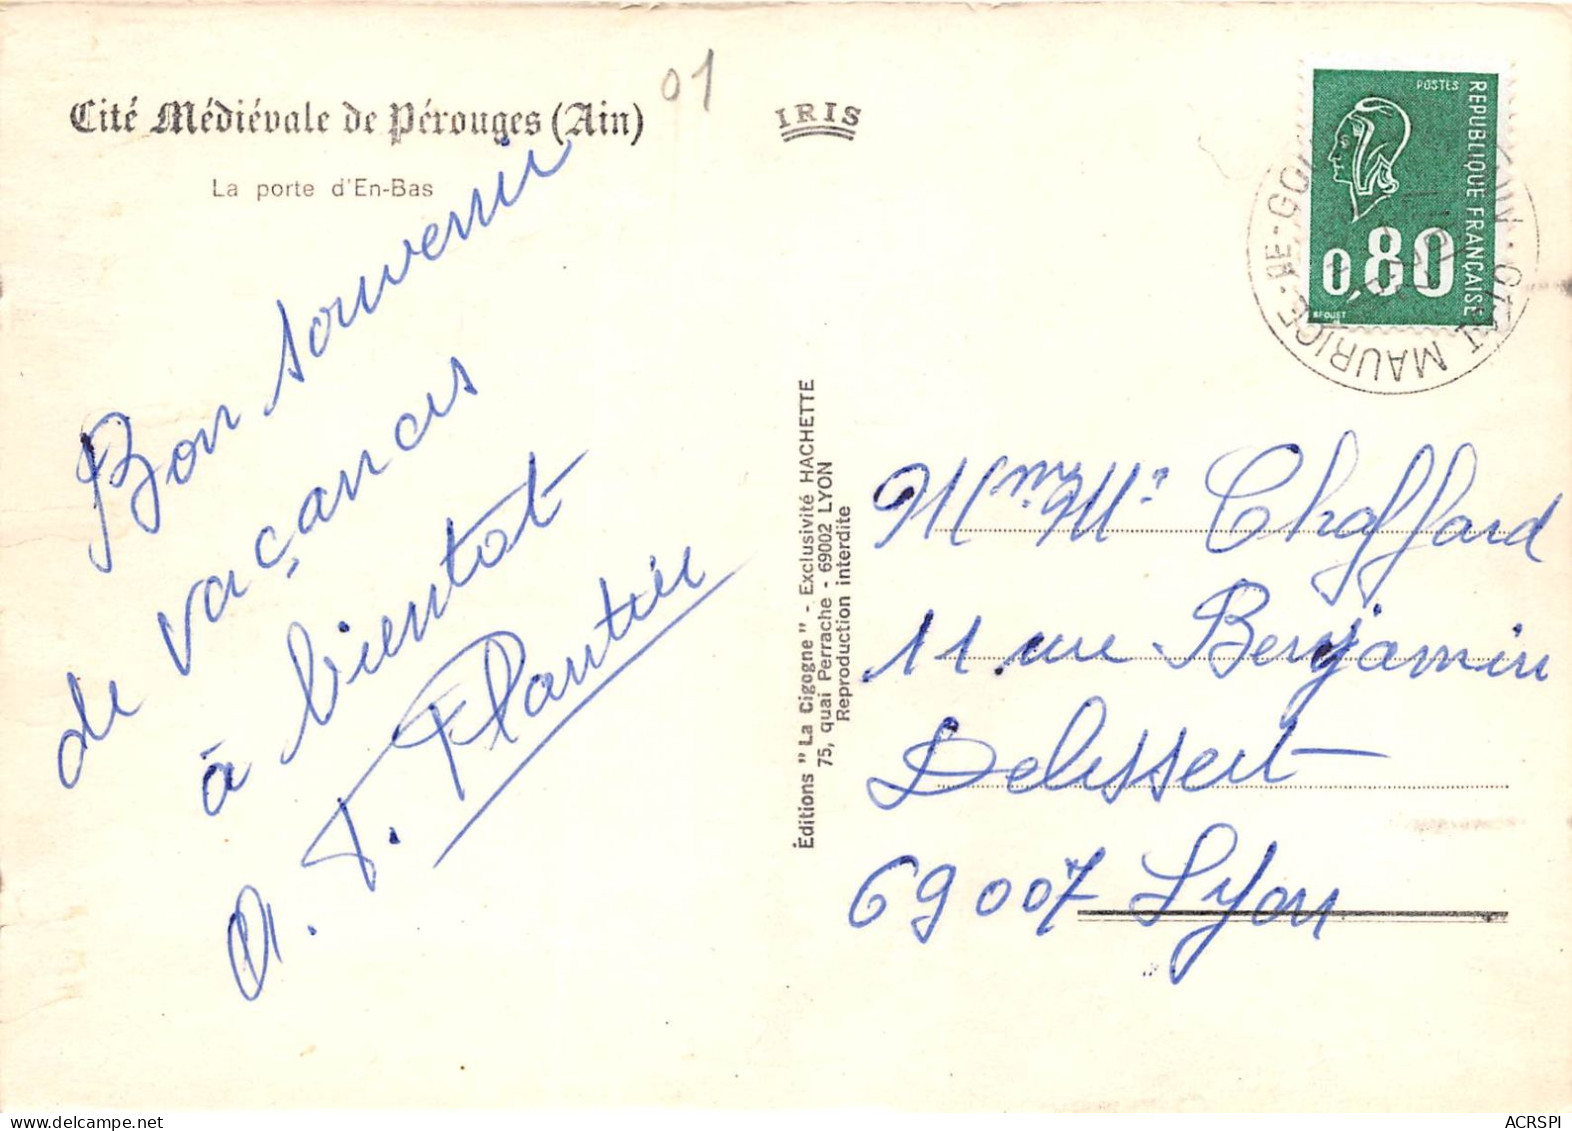 Cité Médiévale de Pérouges (Ain)
01
La porte d'En-Bas
IRIS
POSTES
REPUBLIQUE FRANÇAISE
0,80
BEQUET
MAURICE-DE-GOU
Bon souvenir
de vaçances
à bientot
Plantier
Éditions "La Cigogne" - Exclusivité HACHETTE
75, quai Perrache - 69002 LYON
Reproduction interdite
Chaffard
11 rue Benjamin
Delessert
69007 Lyon
ACRSPI